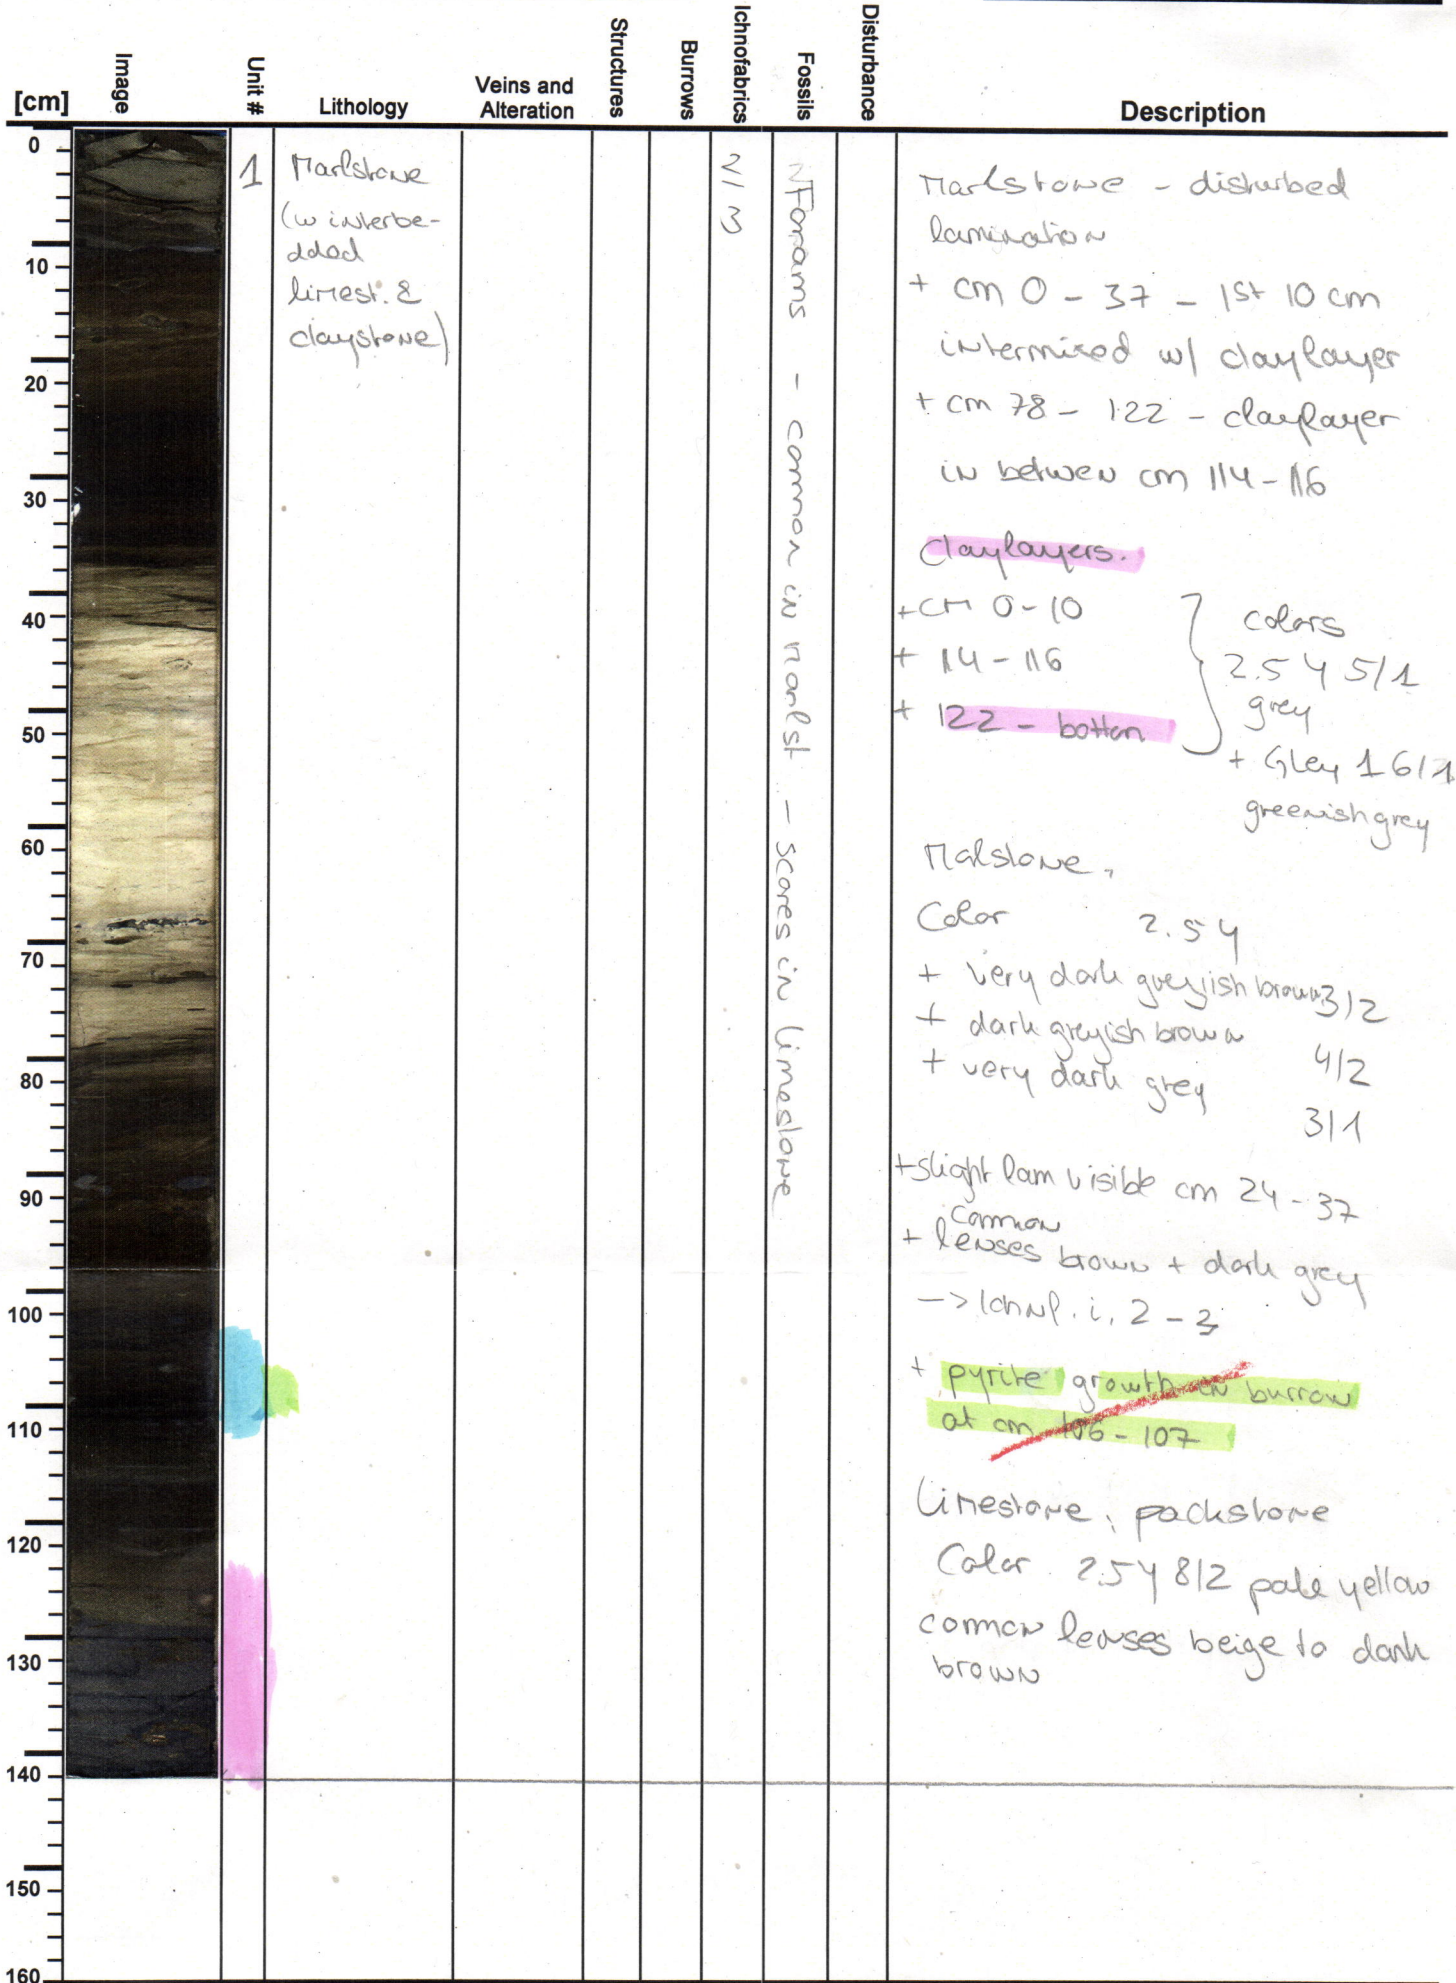 [cm]
Image
Unit #
Lithology
Veins and
Alteration
Structures
Burrows
Ichnofabrics
Fossils
Disturbance
Description
0
10
20
30
40
50
60
70
80
90
100
110
120
130
140
150
160
1
Marlstone
(w interbe-
dded
limest. &
claystone)
2/3
Forams - common in Marlst - scares in limestone
Marlstone - disturbed
lamination
+ cm 0 - 37 - 1st 10 cm
intermixed w/ claylayer
+ cm 78 - 122 - claylayer
in betwen cm 114-116
Claylayers.
+ cm 0-10
+ 114-116
+ 122 - bottom
colors
2.5 Y 5/1
grey
+ Gley 1 6/1
greenish grey
Malstone,
Color 2.5 Y
+ very dark greyish brown 3/2
+ dark greyish brown 4/2
+ very dark grey 3/1
+ slight lam visible cm 24-37
common
+ lenses brown + dark grey
-> Ichnf. i. 2-3
+ pyrite growth in burrow
at cm 106-107
Limestone, packstone
Color 2.5Y 8/2 pale yellow
common lenses beige to dark
brown